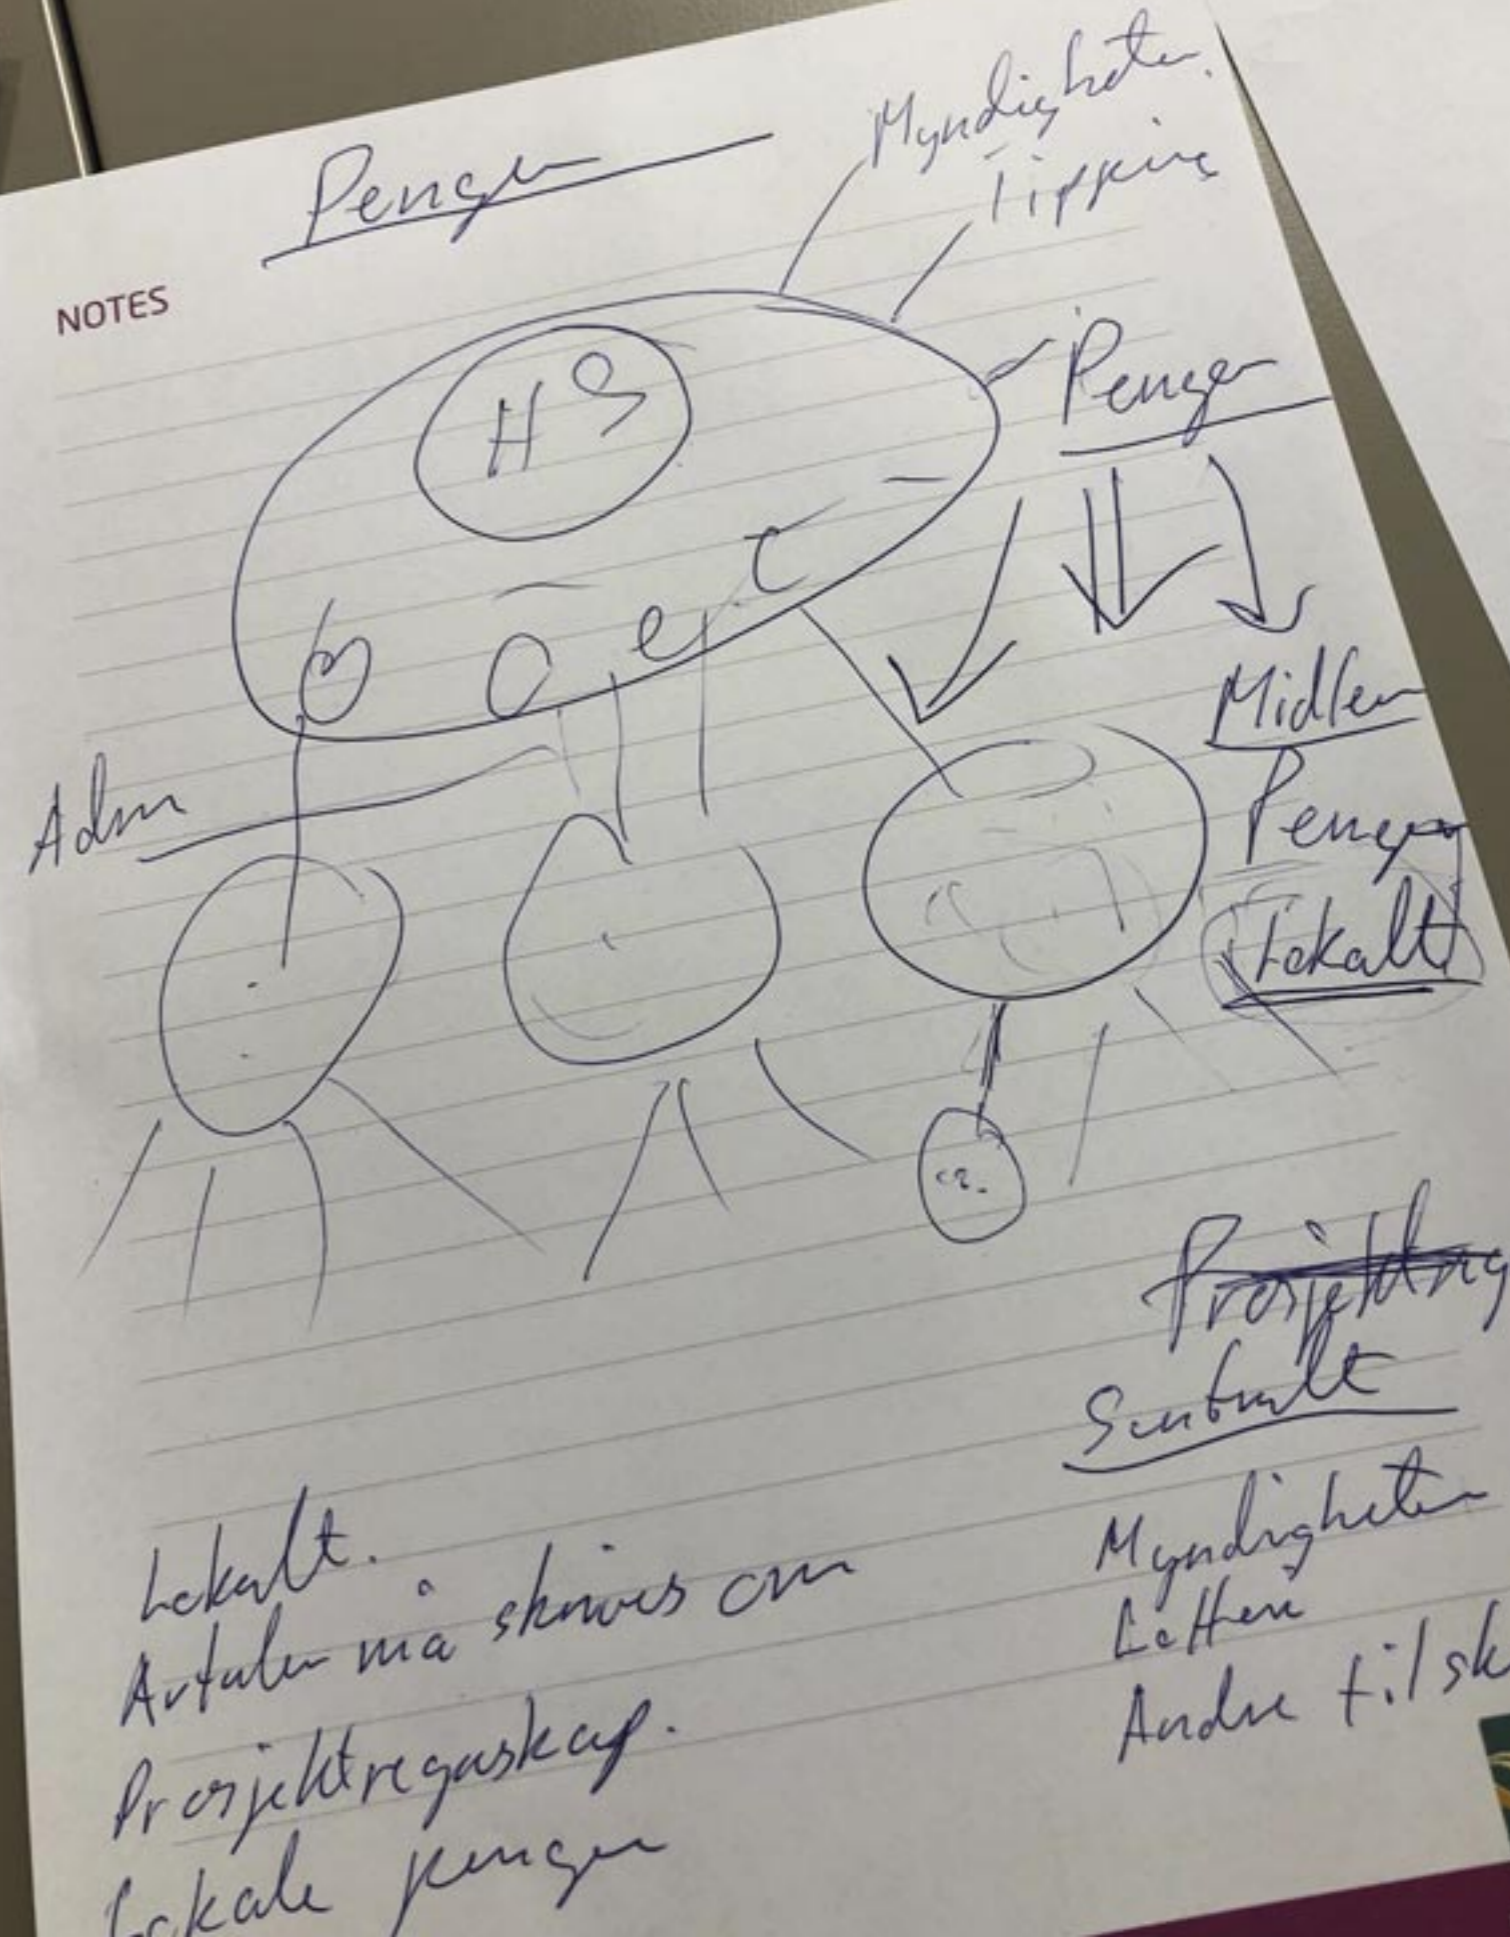 Penger
Myndigheter
Tipping
NOTES
HS
Penger
Adm
Midler
Penger
Lokalt
Sentralt
Myndigheter
Lotteri
Andre tilsk
Lokalt.
Avtaler må skrives om
Prosjektregnskap.
Lokale penger